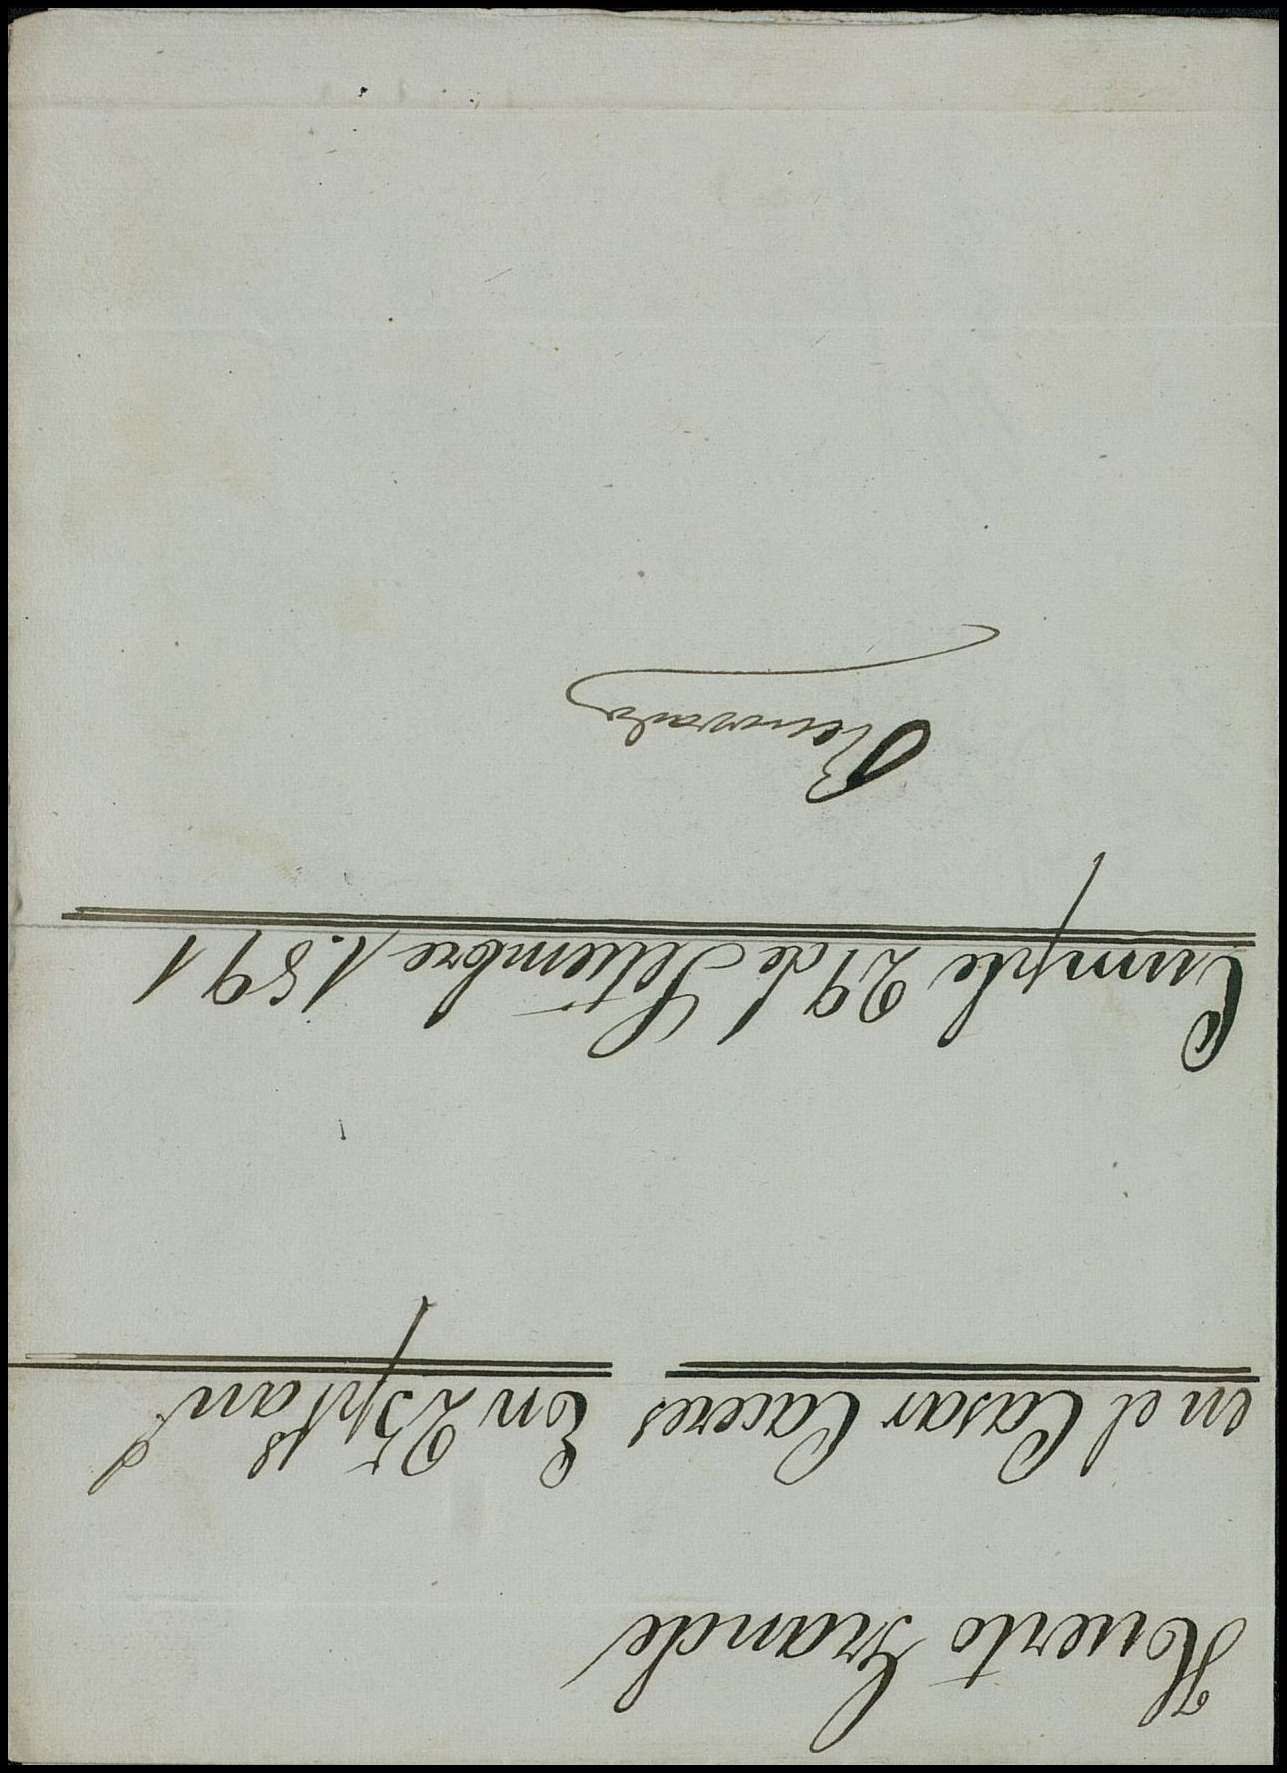 Huerto Grande
en el Casar Caceres En 25 pts an.
Cumple 29 de Setiembre 1.891
Renovado